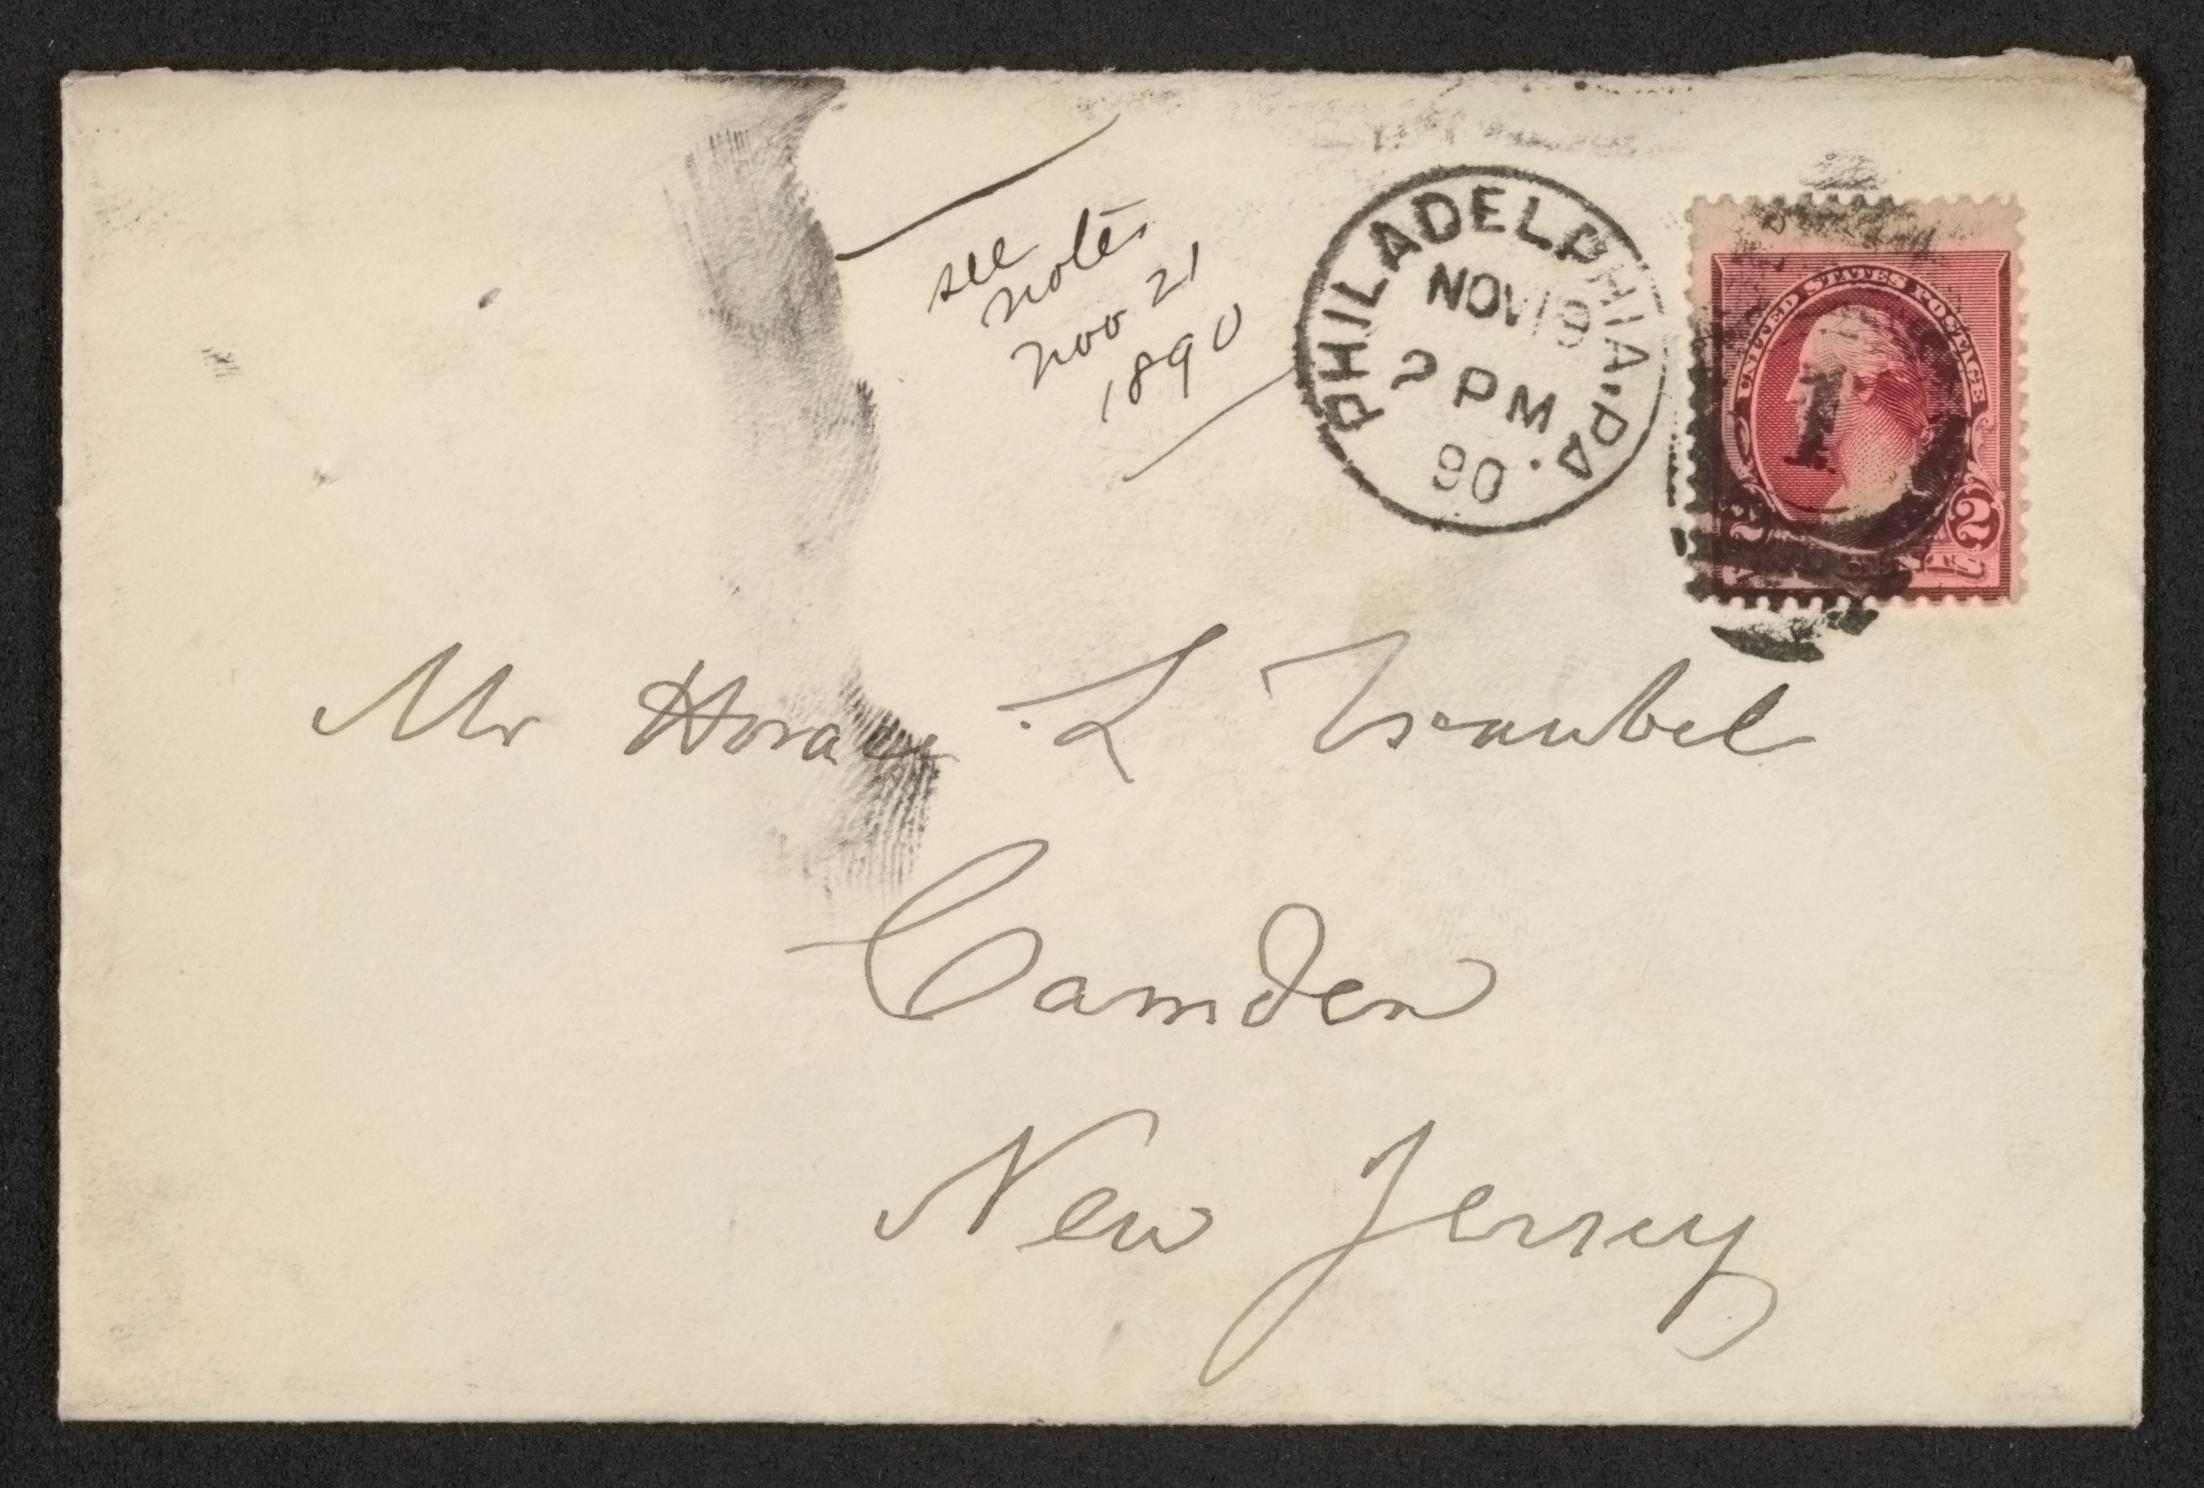 see
notes
Nov 21
1890
PHILADELPHIA, PA.
NOV 19
2 PM
90
UNITED STATES POSTAGE
1
2 2
Mr Horace L Traubel
Camden
New Jersey